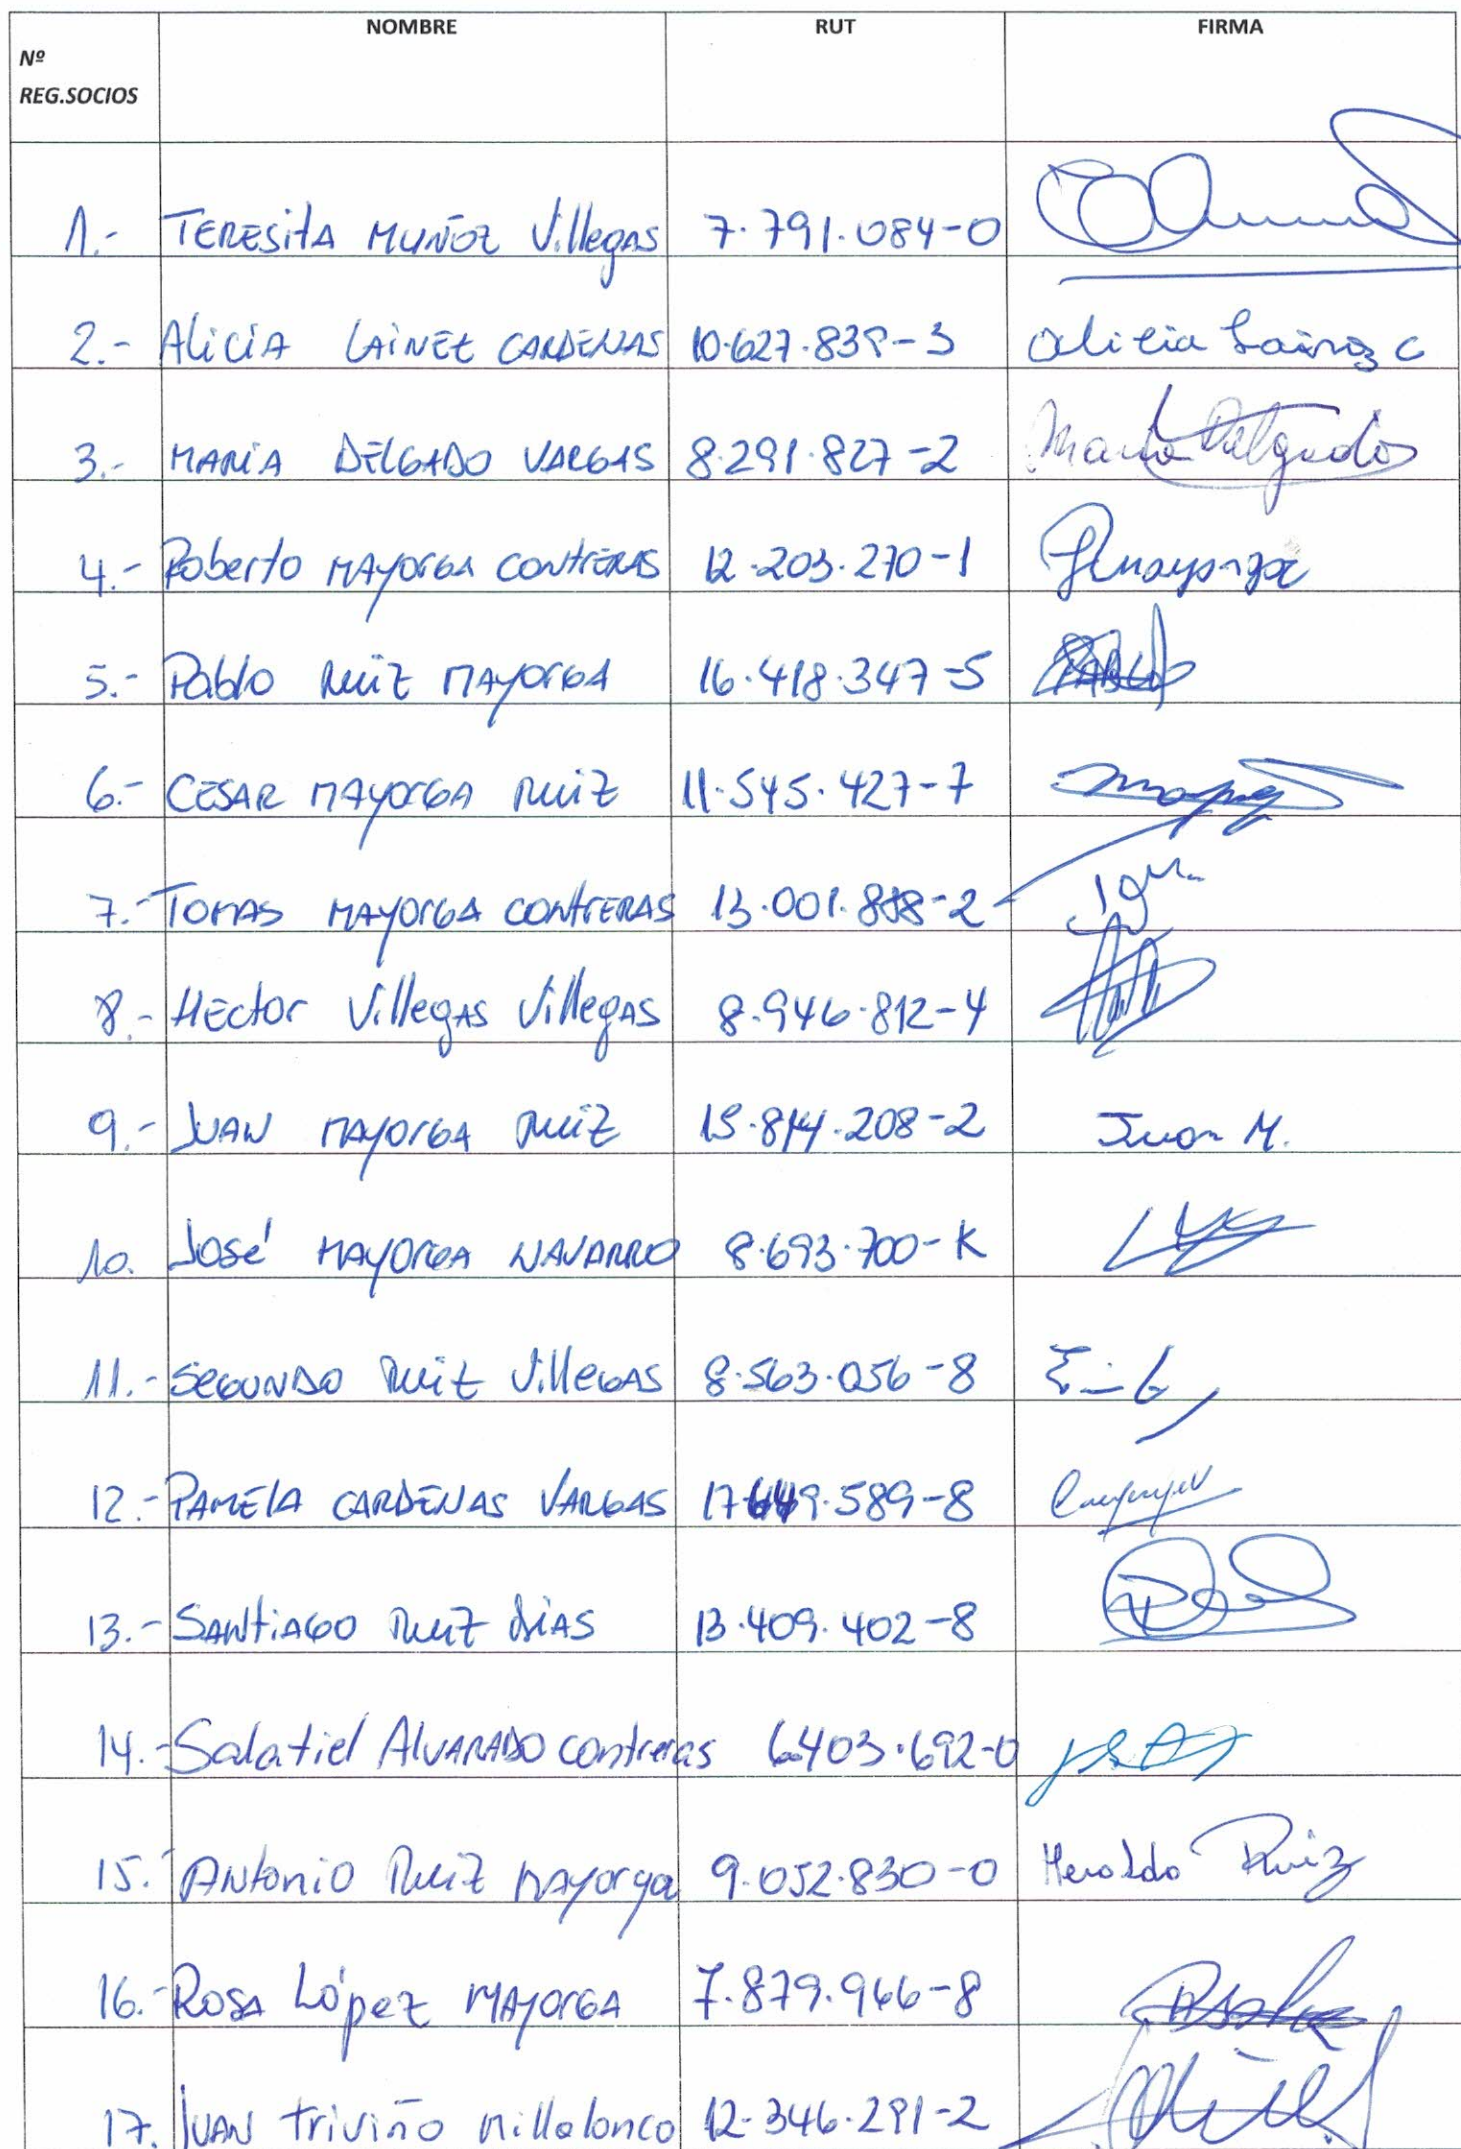 Nº
REG.SOCIOS NOMBRE RUT FIRMA
1.- TERESITA MUÑOZ Villegas 7.791.084-0
2.- Alicia LAINEZ CARDENAS 10.627.839-3 Alicia Lainez C
3.- MARIA DELGADO VARGAS 8.291.827-2 Maria Delgado
4.- Roberto MAYORGA CONTRERAS 12.203.270-1
5.- Pablo RUIZ MAYORGA 16.418.347-5
6.- CESAR MAYORGA RUIZ 11.545.427-7
7.- TOMAS MAYORGA CONTRERAS 13.001.888-2
8.- HECTOR Villegas Villegas 8.946.812-4
9.- JUAN MAYORGA RUIZ 15.814.208-2 Juan M.
10. José MAYORGA NAVARRO 8.693.700-K
11.- SEGUNDO RUIZ VillEGAS 8.563.056-8
12.- PAMELA CARDENAS VARGAS
13.- SANTIAGO RUIZ DIAS 13.409.402-8
14.- Salatiel ALVARADO contreras 6.403.692-0
15. ANtoniO RUIZ MAYorga 9.052.830-0 Heroldo Ruiz
16.- ROSA López MAYORGA 7.879.966-8
17. JUAN triviño Millalonco 12.346.291-2